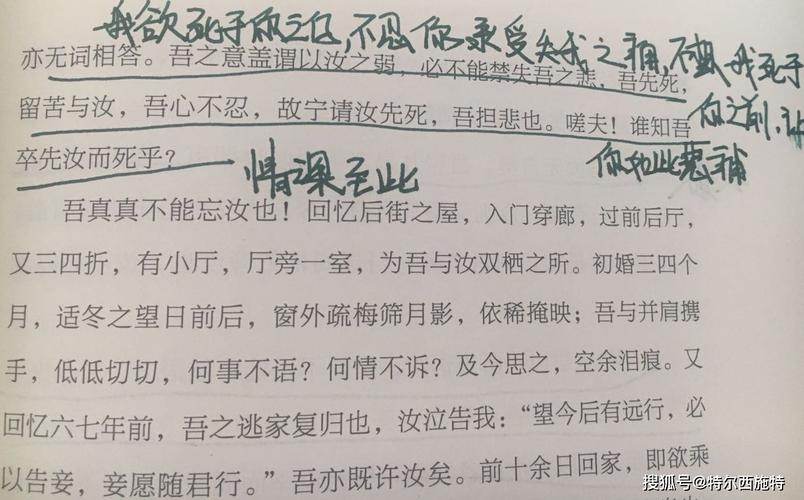 我欲死于你之后,不忍你承受失我之痛,不料我死于
亦无词相答。吾之意盖谓以汝之弱,必不能禁失吾之悲,吾先死,
留苦与汝,吾心不忍,故宁请汝先死,吾担悲也。嗟夫!谁知吾
你之前,让
卒先汝而死乎?
情深至此
你如此悲痛
吾真真不能忘汝也!回忆后街之屋,入门穿廊,过前后厅,
又三四折,有小厅,厅旁一室,为吾与汝双栖之所。初婚三四个
月,适冬之望日前后,窗外疏梅筛月影,依稀掩映;吾与并肩携
手,低低切切,何事不语?何情不诉?及今思之,空余泪痕。又
回忆六七年前,吾之逃家复归也,汝泣告我:“望今后有远行,必
以告妾,妾愿随君行。”吾亦既许汝矣。前十余日回家,即欲乘
搜狐号@特尔西施特